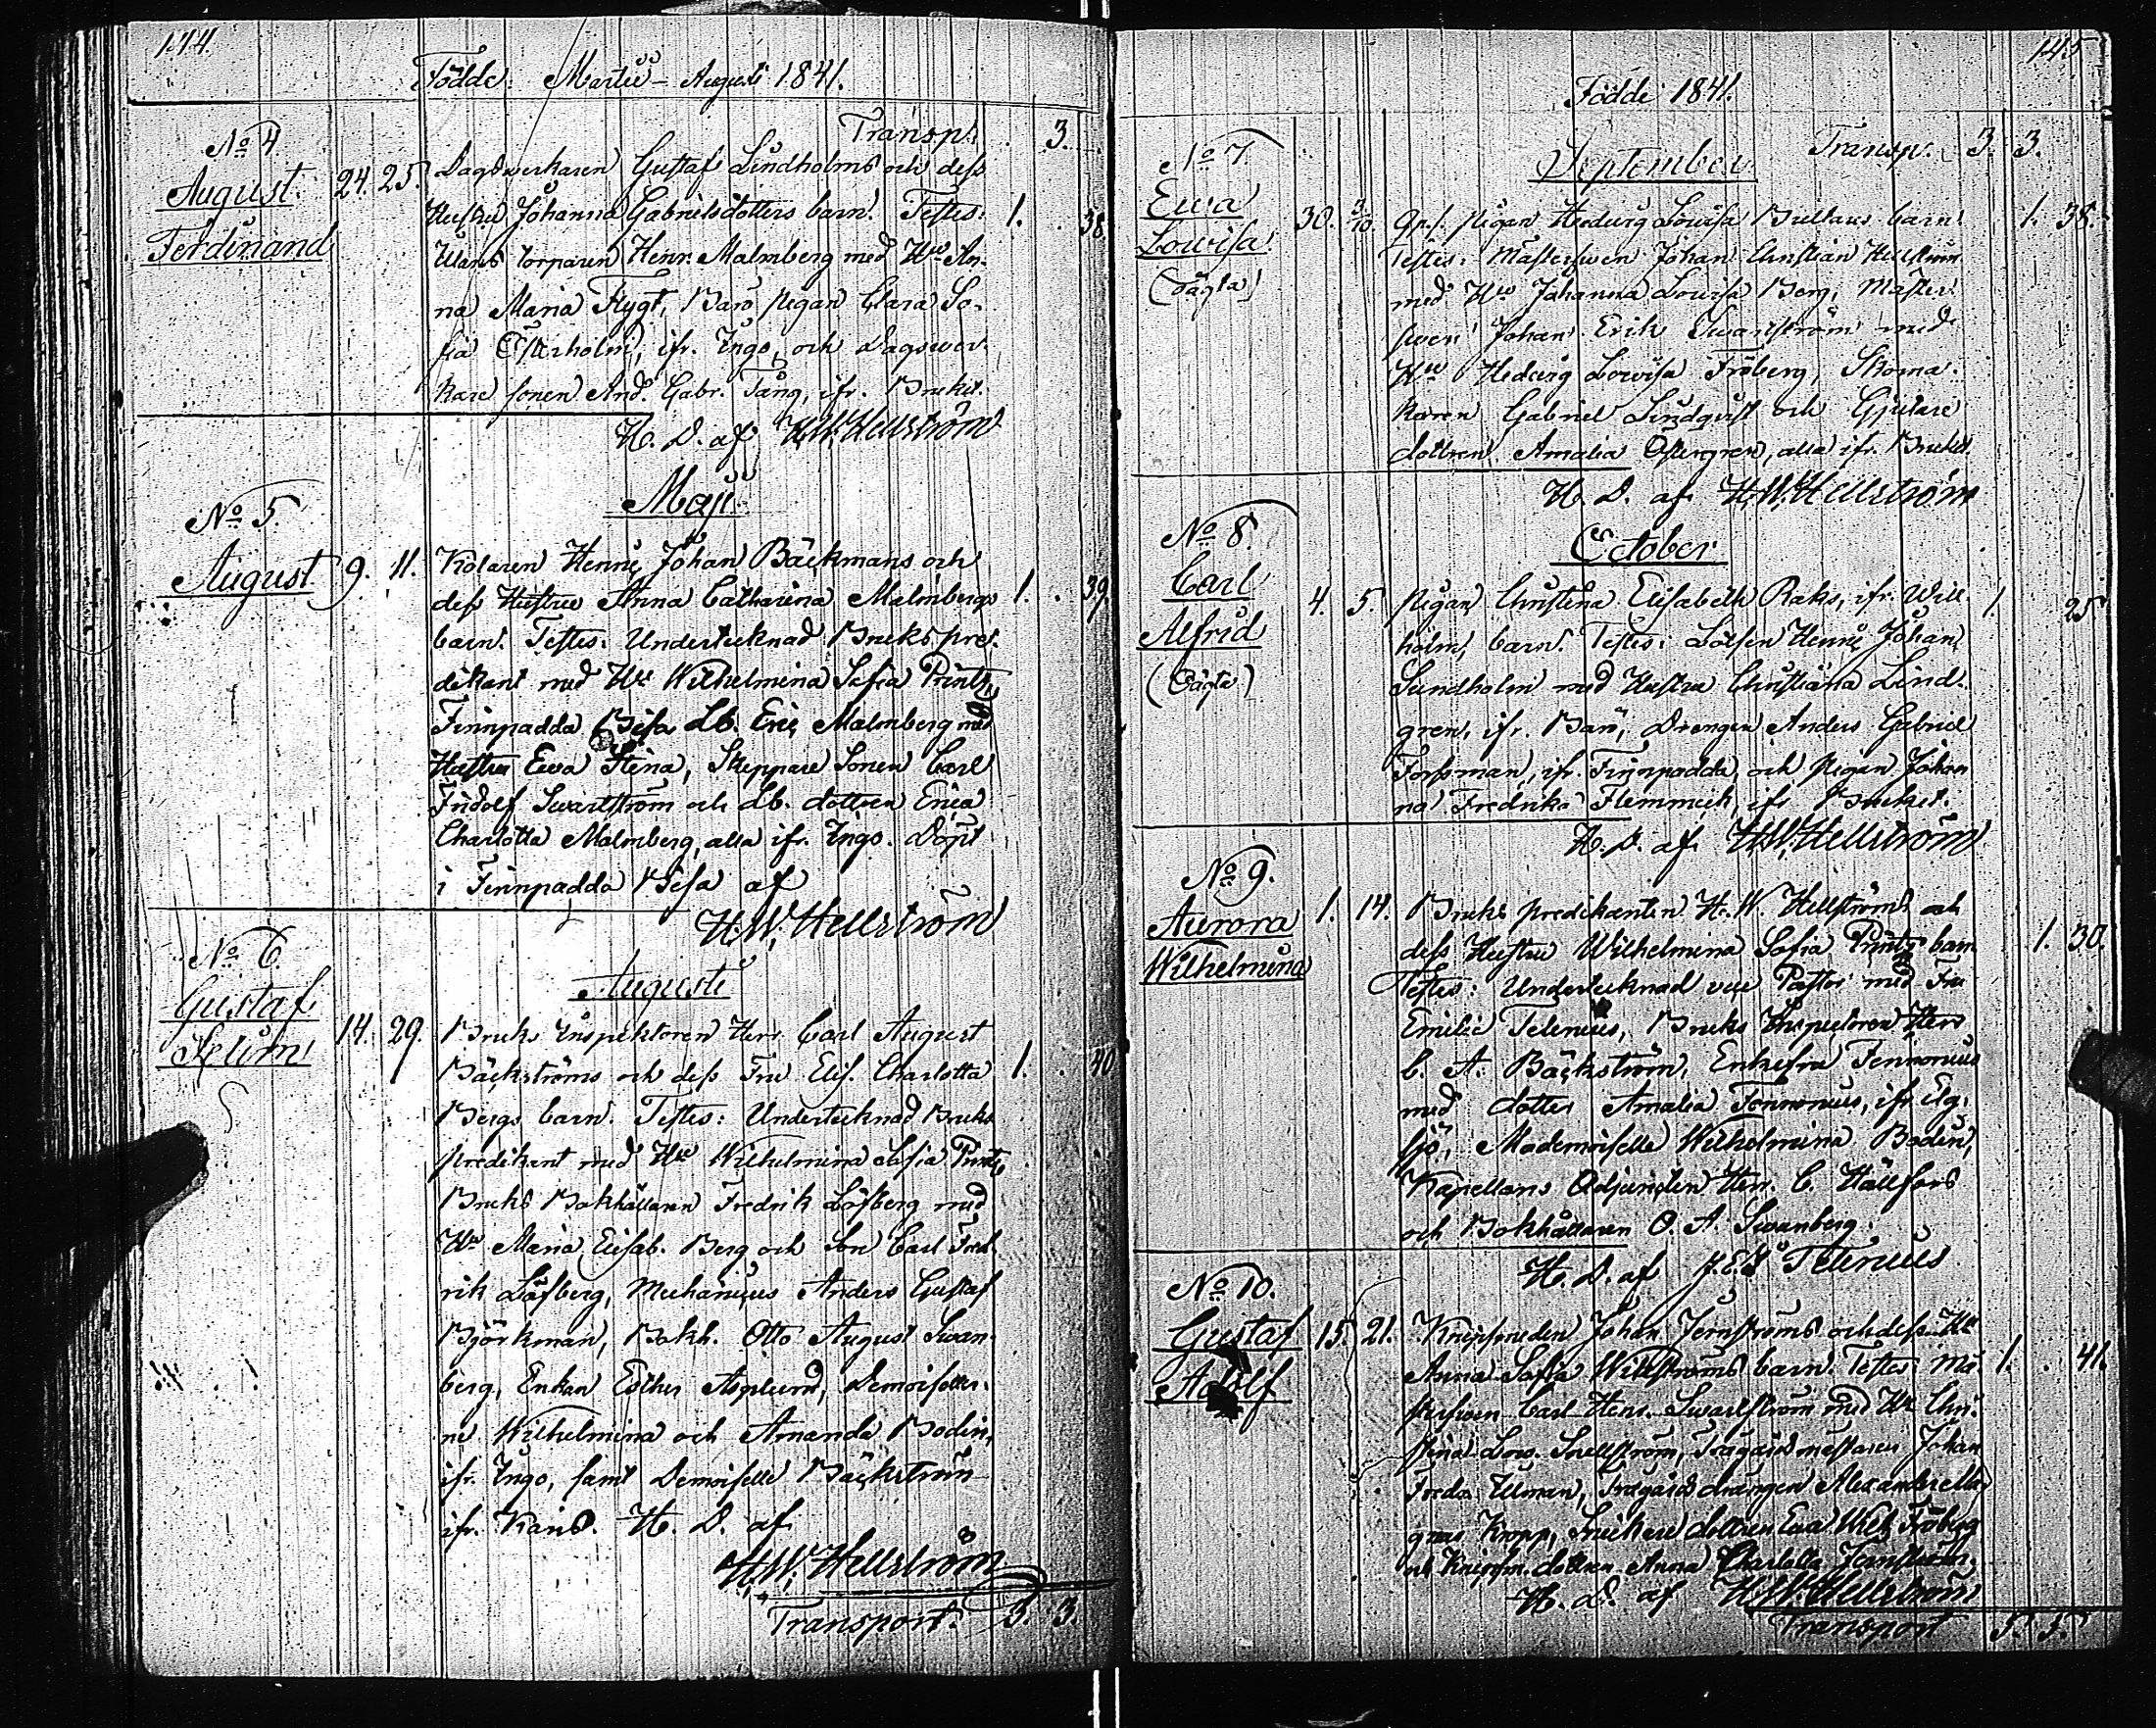 144.
Födde Martii – Augusti 1841.
Transp. 3.
No 4.
August
Ferdinand
24. 25.
Dagsverkaren Gustaf Lindholms och dess
Hustru Johanna Gabrielsdotters barn. Testes: 1. 38
torparen Henr. Malmberg med Hu An-
na Maria Flygt, Barö pigan Clara So-
fia Österholm, ifr. Ingo, och Dagsver-
kare sonen And. Gabr. Tång, ifr. Bruket.
H. D. af H.W. Hellström
Maji
No 5.
August
9. 11.
Kolaren Henric Johan Bäckmans och
dess Hustru Anna Catharina Malmbergs 1. 39
barn. Testes: Undertecknad Brukspre-
dikant med Hu Wilhelmina Sofia Printz,
Finnpadda Bisa Lb. Eric Malmberg med
Hustru Ewa Stina, Skeppare Sonen Carl
Fridolf Swartström och Lb. dottren Erica
Charlotta Malmberg, alla ifr. Ingo. Döpt
i Finnpadda Bisa af
H.W. Hellström
Augusti
No 6.
Gustaf
14. 29.
Bruks Inspektoren Herr Carl August
Bäckströms och dess Fru Elis. Charlotta 1. 40
Bergs barn. Testes: Undertecknad Bruks
predikant med Hu Wilhelmina Sofia Printz,
Bruks Bokhållaren Fredrik Löfberg med
Hu Maria Elisab. Berg och son Carl Fred-
rik Löfberg, Mechanicus Anders Gustaf
Björkman, Bokh. Otto August Swan-
berg, Enkan Esther Asplund, Demoiseller-
ne Wilhelmina och Amanda Bodin,
ifr. Ingo, samt Demoiselle Bäckström
ifr. Karis. H. D. af
H.W. Hellström
Transport. 3. 3.
145
Födde 1841.
September Transp. 3. 3.
No 7
Ewa
Lowisa
(oägta)
30. 3/10.
pigan Hedwig Lowisa barn 1. 38.
Testes: Mästersven Johan Christian Hellström
med Hu Johanna Lowisa Berg, Mäster-
sven Johan Erik Swartström med
Hu Hedwig Lowisa Fröberg, Skoma-
karen Gabriel Lindqvist och Gjutare
dottren Amalia Östergren, alla ifr. Bruket.
H. D. af H.W. Hellström
October
No 8.
Carl
Alfrid
(Oägta)
4. 5.
Pigan Christina Elisabeth Raks, ifr. Will- 1. 25
holm, barn. Testes: Lotsen Henric Johan
Sundholm med Hustru Christiana Lind-
gren, ifr. Barö, Drengen Anders Gabriel
Forssman, ifr. Finnpadda, och pigan Johan-
na Fredrika Flemmich, ifr. Bruket.
H. D. af H.W. Hellström
No 9.
Aurora
Wilhelmina
1. 14.
Bruks predikanten H. W. Hellströms och
dess Hustru Wilhelmina Sofia Printz barn 1. 30.
Testes: Undertecknad vice Pastor med Fru
Emilie Telenius, Bruks Inspectoren Herr
C. A. Bäckström, Enkefru Fennonius
med dotter Amalia Fennonius, ifr. Elg-
sjö, Mademoiselle Wilhelmina Bodin,
Kapellans Adjuncten Herr C. Hällfors
och Bokhållaren O. A. Swanberg.
H. D. af Telenius
No 10.
Gustaf
Adolf
15. 21.
Knipsmeden Johan Jernströms och dess Hu
Anna Sofia Willströms barn. Testes: Mä- 1. 41.
stersven Carl Henr. Swartström med Hu Chri-
stina Lovs. Snellström, Trägårdmästaren Johan
Fredr. Ullman, Trägårds drängen Alexander Ma-
gnus Kropp, Snickare dottren Ewa Wilh. Fröberg
och Knipsm. dottren Anna Charlotta Jernström.
H. D. af H.W. Hellström
Transport 5. 5.